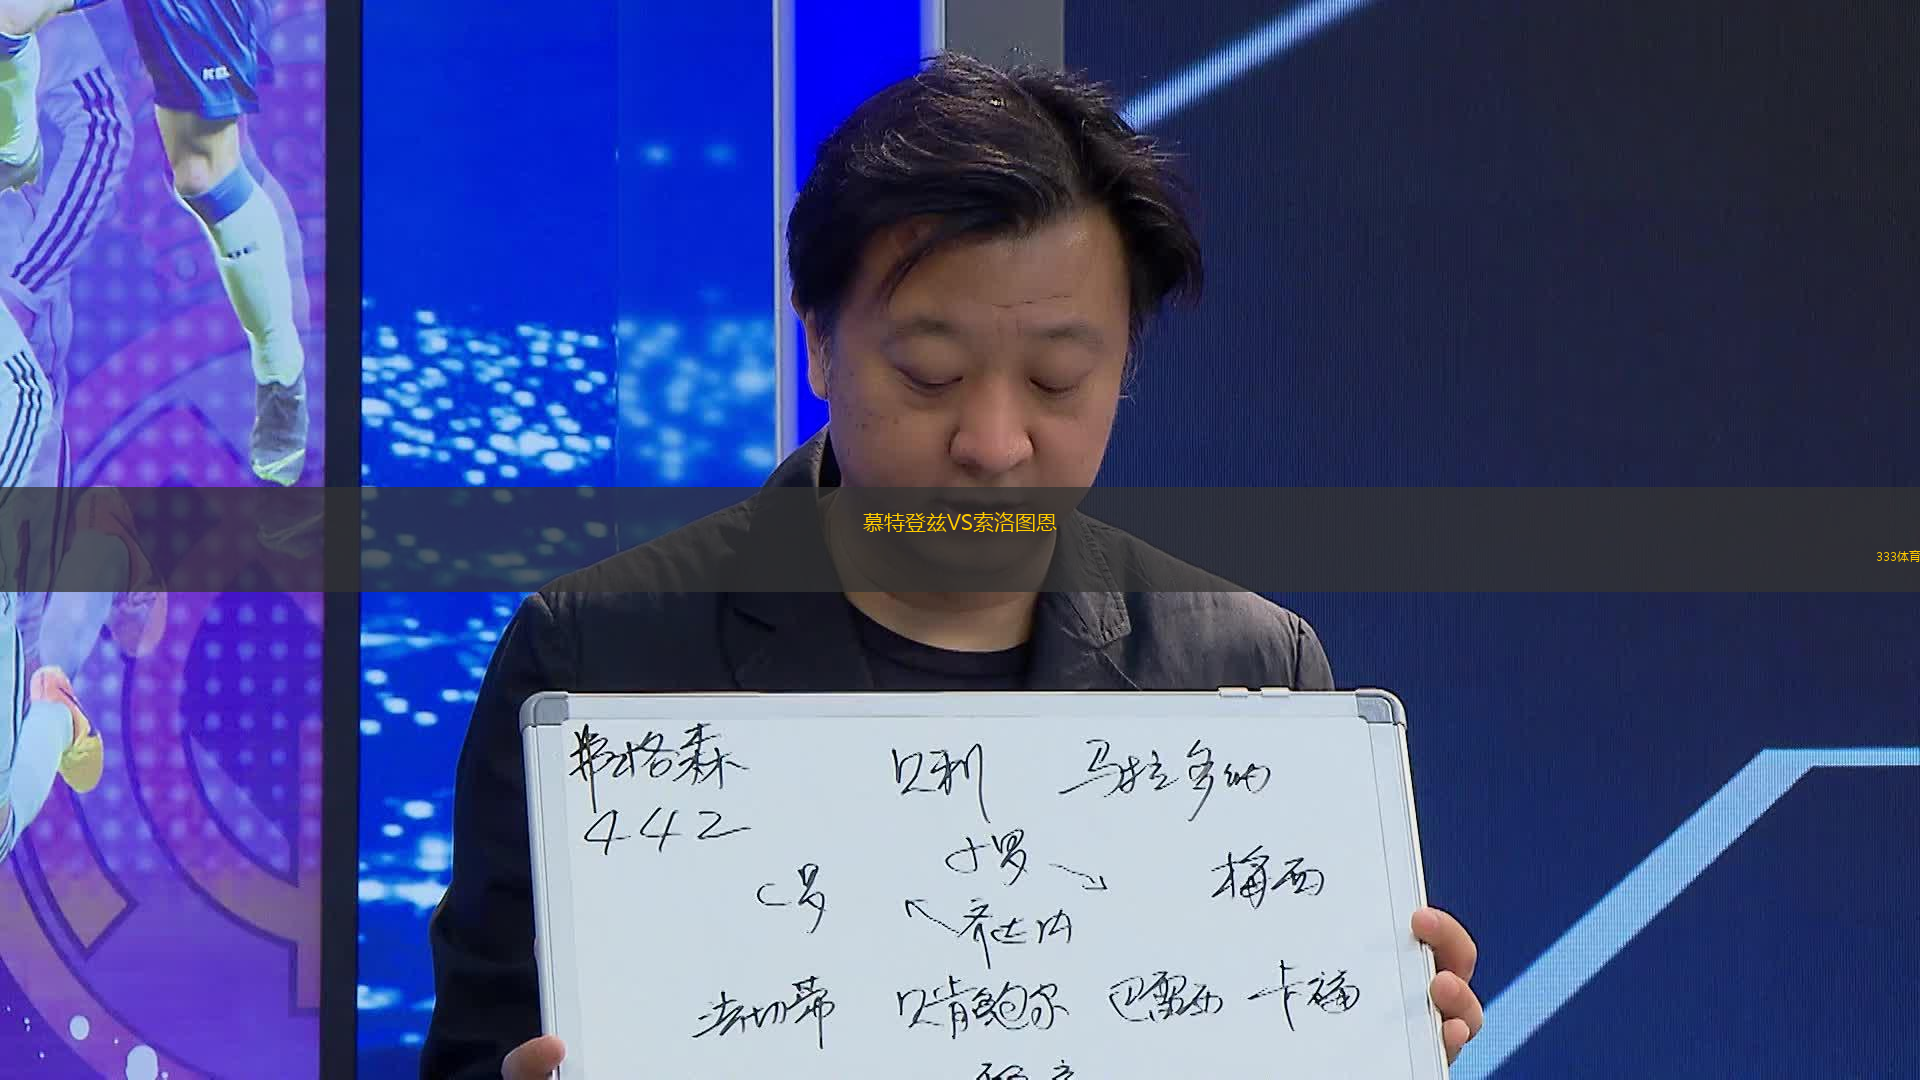 慕特登兹VS索洛图恩
333体育
弗格森 贝利 马拉多纳
442
小罗
C罗 梅西
齐达内
法切蒂 贝肯鲍尔 巴雷西 卡福